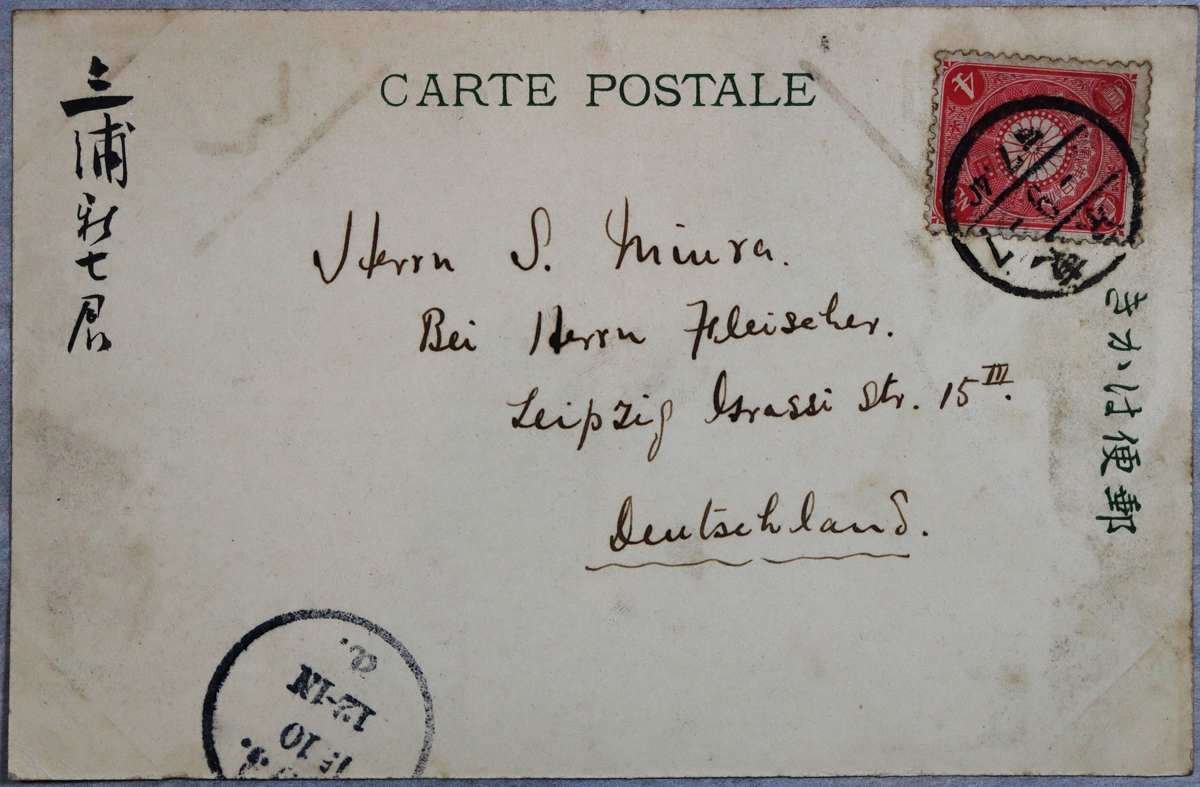 CARTE POSTALE
三浦新七君
Herrn S. Miura.
Bei Herrn Fleischer.
Leipzig Grassi Str. 15 III.
Deutschland.
きかは便郵
4
12-1N
a.
10